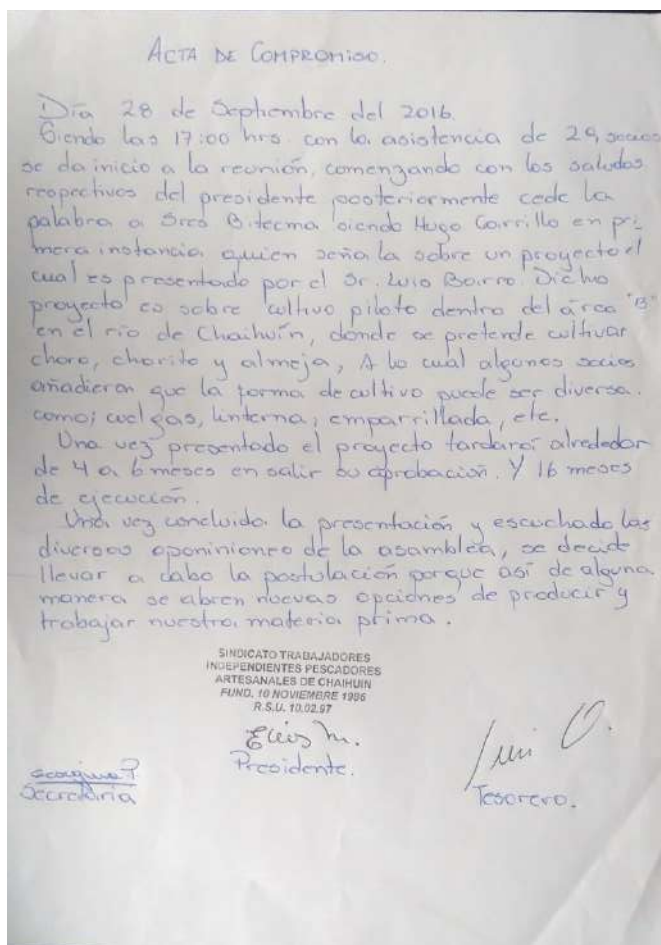 ACTA DE COMPROMISO.
Día 28 de Septiembre del 2016.
Siendo las 17:00 hrs. con la asistencia de 29 socios
se da inicio a la reunión, comenzando con los saludos
respectivos del presidente posteriormente cede la
palabra a Sres Bitecma siendo Hugo Carrillo en pri
mera instancia quien señala sobre un proyecto el
cual es presentado por el Sr. Luis Barro. Dicho
proyecto es sobre cultivo piloto dentro del área "B"
en el río de Chaihuín, donde se pretende cultivar
choro, chorito y almeja, A lo cual algunos socios
añadieron que la forma de cultivo puede ser diversa.
como; cuelgas, linterna, emparrillada, etc.
Una vez presentado el proyecto tardará alrededor
de 4 a 6 meses en salir su aprobación. Y 16 meses
de ejecución.
Una vez concluida la presentación y escuchado las
diversas oponiniones de la asamblea, se decide
llevar a cabo la postulación porque así de alguna
manera se abren nuevas opciones de producir y
trabajar nuestra materia prima.
SINDICATO TRABAJADORES
INDEPENDIENTES PESCADORES
ARTESANALES DE CHAIHUIN
FUND. 10 NOVIEMBRE 1996
R.S.U. 10.02.97
Presidente.
Secretaria
Tesorero.